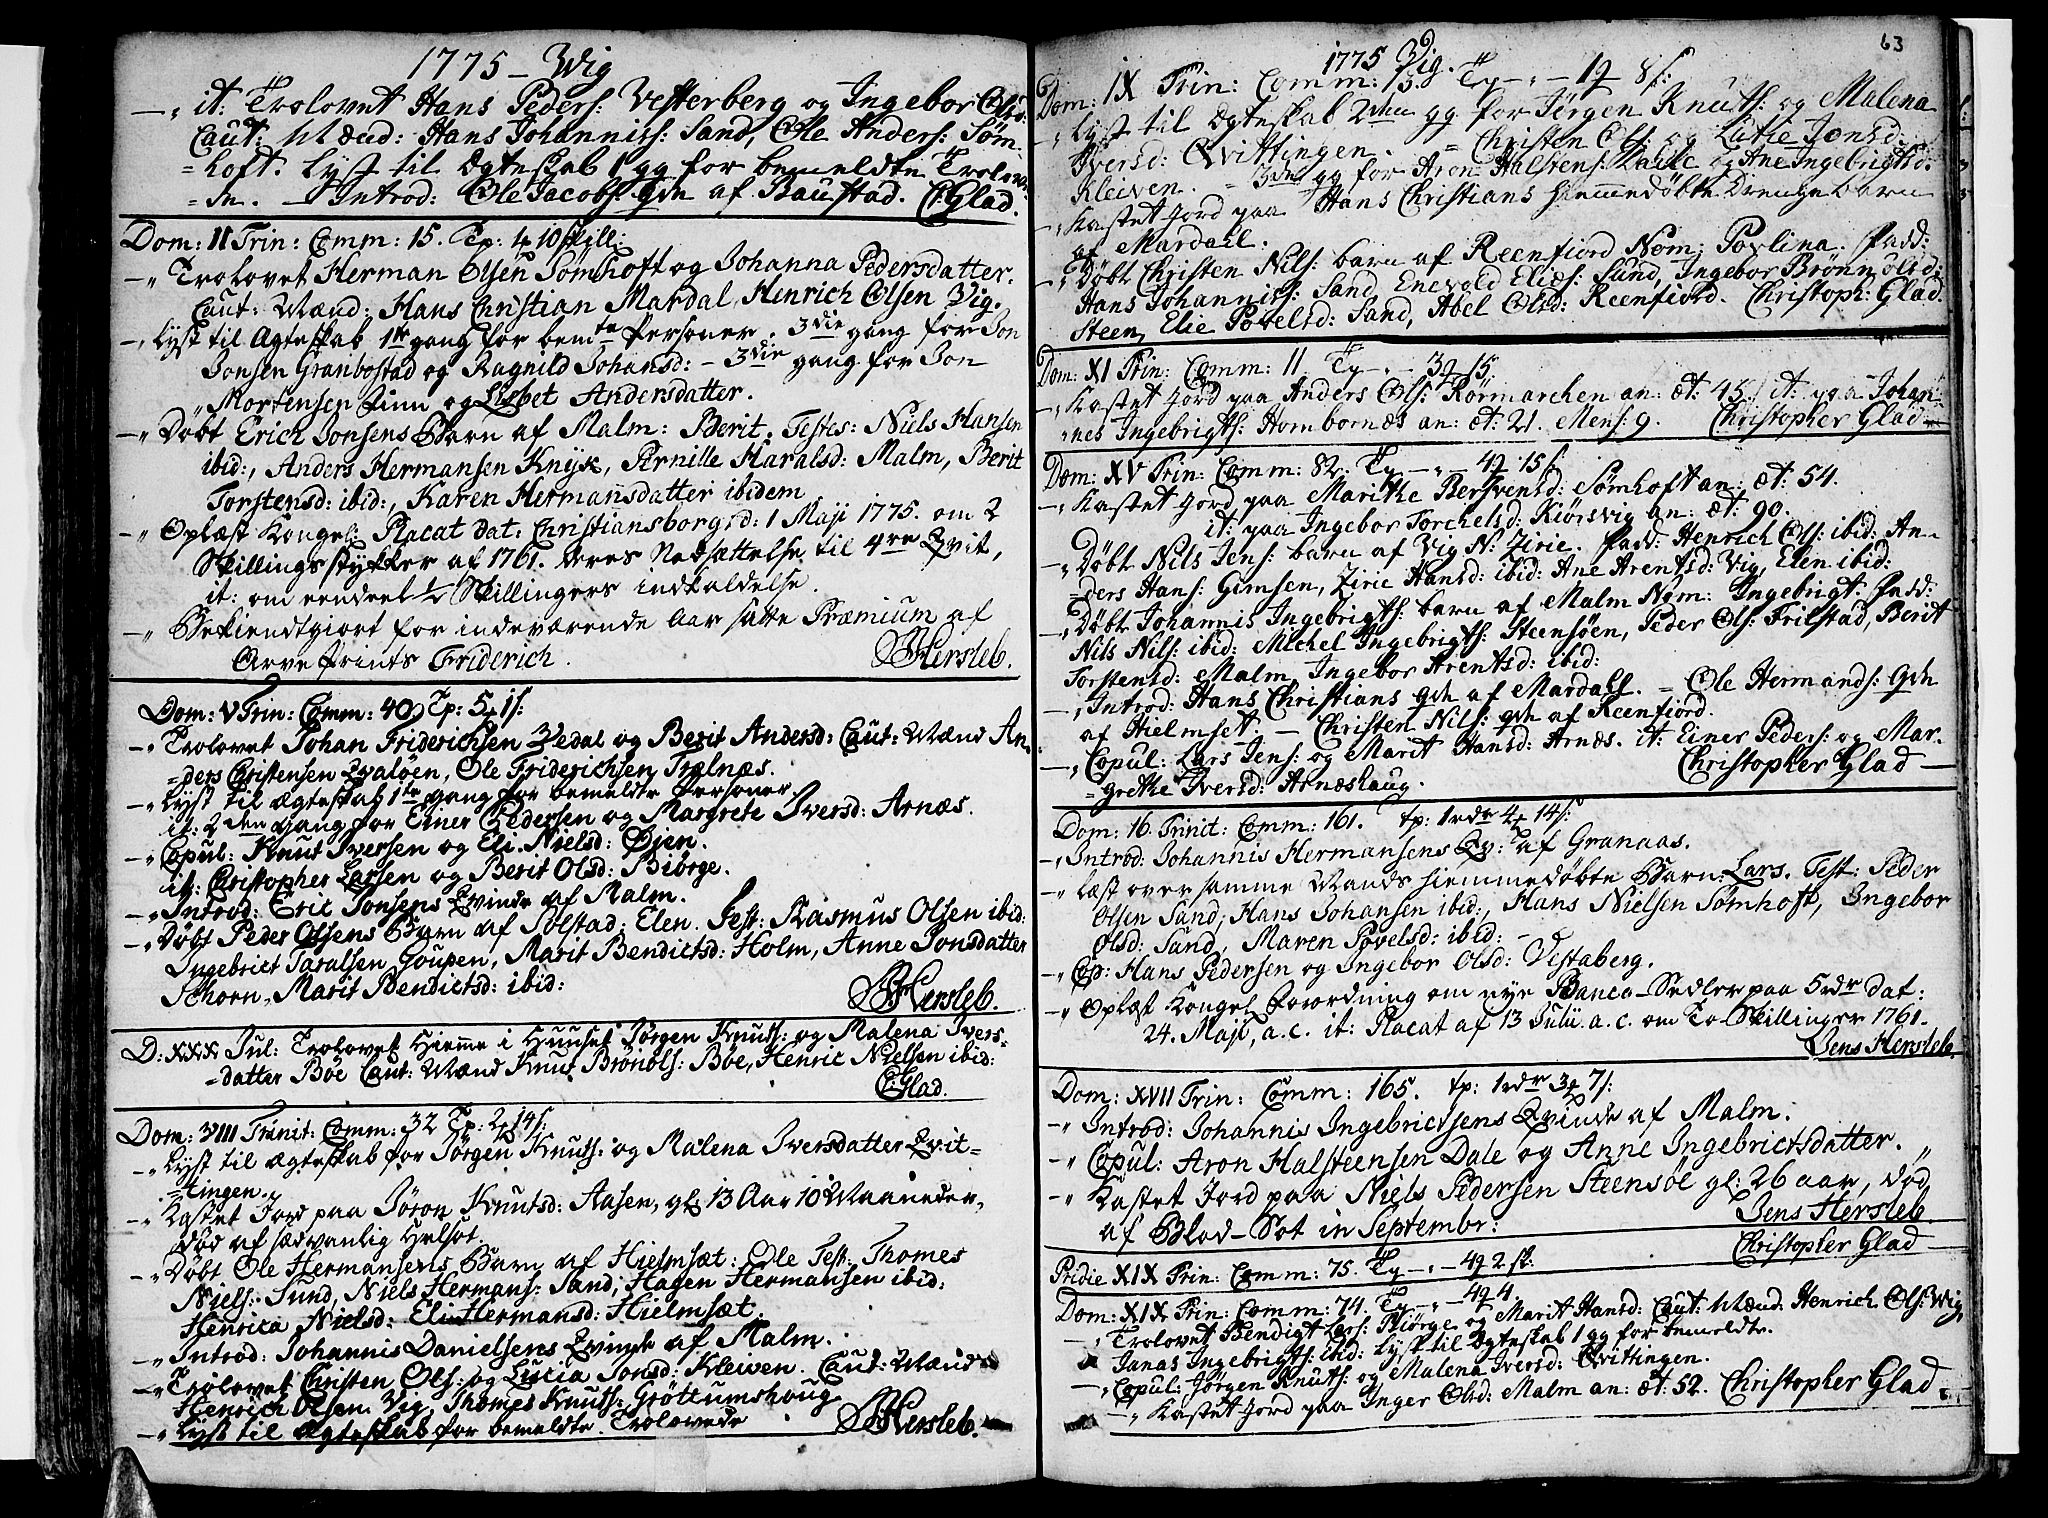 1775 - Wig
-„ it: Trolovet Hans Peders: Vesterberg og Ingebor Olsd:
Caut: Mænd: Hans Johanniss: Sand, Ole Anders: Søm-
=hoft. Lyst til Egteskab 1 gg for bemeldte Trolov
=de. - Introd: Ole Jacobs: qvn af Baustad. C: Glad.
Dom: II Trin: Comm: 15. Tp: 10 skill:
-„ Trolovet Herman Olsen Sømhoft og Johanna Pedersdatter.
Caut: Mænd: Hans Christian Mardal, Henrich Olsen Vig.
-„ Lyst til Ægteskab 1te gang for bemte Personer. 3die gang for Jon
Jonsen Granbostad og Ragnild Johansd: - 3die gang for Jon
Mortensen Finn og Lisbet Andersdatter.
-„ Døbt Erich Jonsens Barn af Malm: Berit. Testes: Niels Hansen
ibid:, Anders Hermansen Knyk, Pernille Haralsd: Malm, Berit
Torstensd: ibid:, Karen Hermansdatter ibidem
-„ Oplæst Kongel: Placat dat: Christiansborg d: 1 Maji 1775. om 2
Skillingsstykker af 1761. deres Nedsættelse til 4re Qvit,
it: om eendeel 1/2 Skillingers indkaldelse.
-„ Bekiendtgiort for indeværende Aar satte Præmium af
Arve Prints Friderich. JHersleb.
Dom: V Trin: Comm: 40 Tp: 5 1s:
-„ Trolovet Johan Friderichsen Vedal og Berit Andersd: Caut: Mænd An-
=ders Christensen Qvaløen, Ole Friderichsen Trælnæs.
-„ Lyst til ægteskab 1te gang for bemeldte Personer.
it: 2den gang for Einer Pedersen og Margrete Iversd: Arnæs.
-„ Copul: Knut Iversen og Eli Nielsd: Øjen.
it: Christopher Larsen og Berit Olsd: Biørge.
-„ Introd: Eric Jonsens Qvinde af Malm.
-„ Døbt Peder Olsens Barn af Solstad: Elen. Test: Rasmus Olsen ibid:
Ingebrict Taralsen Goupen, Marit Bendictsd: Holm, Anne Jonsdatter
Schorn, Marit Bendictsd: ibid:
JHersleb.
D: XXX Jul: Trolovet Hiemme i Huuset Jørgen Knuts: og Malena Ivers-
=datter Bøe Caut: Mænd Knut Brønols: Bøe, Henric Nielsen ibid:
C: Glad.
Dom: VIII Trinit: Comm: 32 Tp: 2 14s:
-„ Lyst til ægteskab for Jørgen Knuts: og Malena Iversdatter Qvit-
=tingen.
-„ Kastet Jord paa Jøron Knutsd: Aasen, gl: 13 Aar 10 Maaneder,
død af sædvanlig Helsot.
-„ Døbt Ole Hermansens Barn af Hielmsæt: Ole Test: Thomes
Niels: Sund, Niels Hermans: Sand, Hagen Hermansen ibid:
Henrica Nielsd: Eli Hermansd: Hielmsæt.
-„ Introd: Johannis Danielsens Qvinde af Malm.
-„ Trolovet Christen Ols: og Lucia Jonsd: Klewen. Caut: Mænd
Henrich Olsen Vig, Thomes Knuts: Grøttumshoug
-„ Lyst til ægteskab for bemeldte Trolovede JHersleb.
63
1775 Vig.
Dom: IX Trin: Comm: 13. Tp - „ - 1 8s:
-„ Lyst til Egteskab 2den gg for Jørgen Knuts: og Malena
Iversd: Qvittingen. = Christen Ols: og Lucie Jonsd:
Kleiven. - 3die gg for Aron Halstens: Dahle og Ane Ingebrigtsd:
-„ Kastet Jord paa Hans Christians hiemmedøbte Drenge barn
af Mardall.
-„ Døbt Christen Nils: barn af Reenfiord Nom: Povlina. Fadd:
Hans Johanniss: Sand, Enevold Elies: Sund, Ingebor Brønnolsd:
Steen, Elie Povelsd: Sand, Abel Olsd: Reenfiord. Christoph: Glad.
Dom: XI Trin: Comm: 11 Tp - „ - 3 15.
-„ Kastet Jord paa Anders Ols: Rørmarchen an: æt: 45. it: paa Johan-
=nes Ingebrigts: Hombornæs an: æt: 21. Mens: 9. Christopher Glad
Dom: XV Trin: Comm: 82. Tp - „ - 4 15s:
-„ Kastet Jord paa Marithe Bersvensd: Sømhoft an: æt: 54.
it: paa Ingebor Torchelsd: Kiørsvig an: æt: 90.
-„ Døbt Nils Jens: barn af Vig N: Zirie. Fadd: Henrich Ols: ibid: An-
=ders Hans: Gimsen, Zirie Hansd: ibid: Ane Arentsd: Vig, Elen ibid:
-„ Døbt Johannis Ingebrigts: barn af Malm Nom: Ingebrigt. Fadd:
Nils Nils: ibid: Michel Ingebrigts: Steensøen, Peder Ols: Frilstad, Berit
Torstensd: Malm, Ingebor Arentsd: ibid:
-„ Introd: Hans Christians qvn af Mardall. - Ole Hermands: qvn
af Hielmset. - Christen Nils: qvn af Reenfiord.
-„ Copul: Lars Jens: og Marit Hansd: Arnæs. it: Einer Peders: og Mar-
=grethe Iversd: Arnæshaug. Christopher Glad
Dom: 16. Trinit: Comm: 161. Tp: 1 rdr 4 14s:
-„ Introd: Johannis Hermansens Qv: af Granaas.
-„ Læst over samme Mands hiemmedøbte Barn: Lars. Test: Peder
Olsen Sand, Hans Johansen ibid:, Hans Nielsen Sømhoft, Ingebor
Olsd: Sund, Maren Povelsd: ibid:
-„ Cop: Hans Pedersen og Ingebor Olsd: Vestaberg.
-„ Oplæst Kongel Forordning om nye Banco-Sedler paa 5 rdr dat:
24. Maji, a.c. it: Placat af 13 Julii a.c. om To-Skillinger 1761.
Jens Hersleb.
Dom: XVII Trin: Comm: 165. tp: 1 rdr 3 7s:
-„ Introd: Johannis Ingebrictsens Qvinde af Malm.
-„ Copul: Aron Halsteensen Dale og Anne Ingebrictsdatter.
-„ Kastet Jord paa Niels Pedersen Steensøl gl: 26 aar, død
af Blod-Sot in Septembr: Jens Hersleb.
Pridie XIX Trin: Comm: 75. Tp - „ - 4 2 sk. Christopher Glad
Dom: XIX Trin: Comm: 74. Tp - „ - 4 4.
-„ Trolovet Bendigt Lars: Biørge og Marit Hansd: Caut: Mænd. Henrich Ols: Wig,
Janas Ingebrigts: ibid: Lyst til Egteskab 1 gg for bemeldte.
-„ Copul: Jørgen Knuts: og Malena Iversd: Qvittingen.
-„ Kastet Jord paa Inger Olsd: Malm an: æt: 52. Christopher Glad